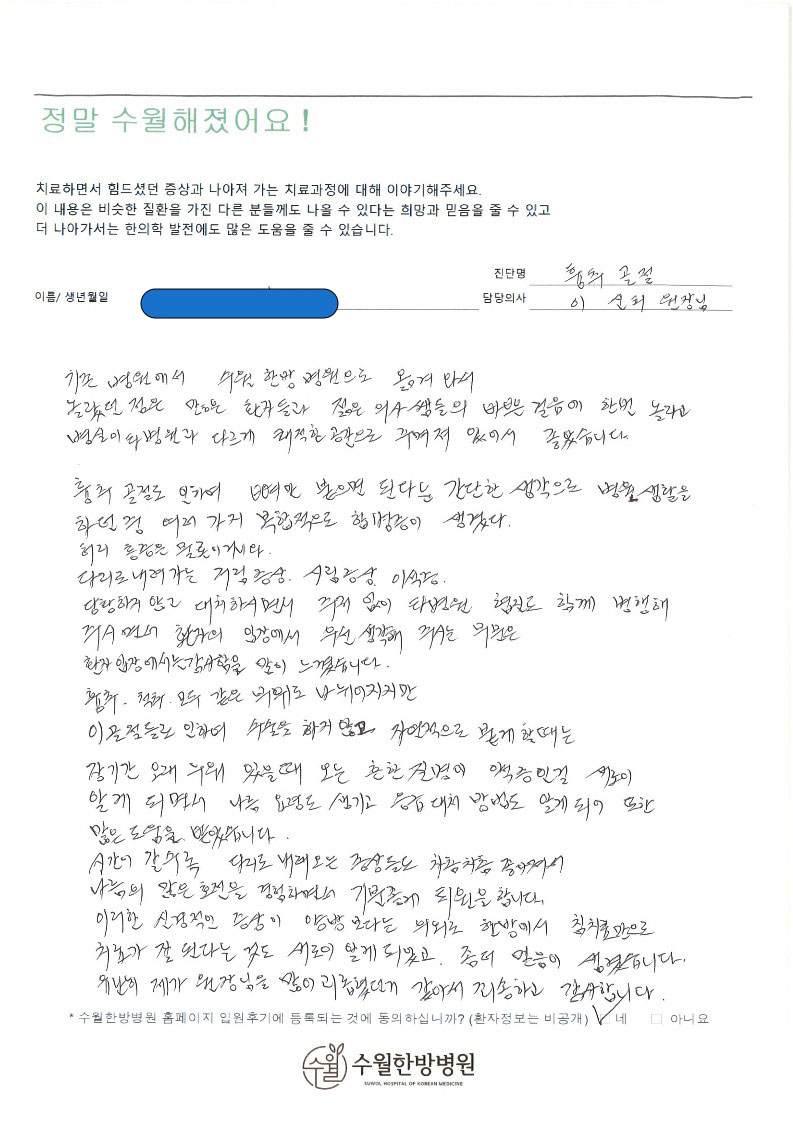 정말 수월해졌어요!
치료하면서 힘드셨던 증상과 나아져 가는 치료과정에 대해 이야기해주세요.
이 내용은 비슷한 질환을 가진 다른 분들께도 나을 수 있다는 희망과 믿음을 줄 수 있고
더 나아가서는 한의학 발전에도 많은 도움을 줄 수 있습니다.
진단명 흉추 골절
이름/ 생년월일
담당의사 이 원장님
병원에서 수월 한방 병원으로 옮겨 와서
놀랐던 점은 많은 환자들과 젊은 의사 쌤들의 바쁜 걸음에 한번 놀라고
병실이 타병원과 다르게 쾌적한 공간으로 꾸며져 있어서 좋았습니다.
흉추 골절로 인하여 뼈만 붙으면 된다는 간단한 생각으로 병원 생활을
하던 중 여러 가지 복합적으로 합병증이 생겼다.
허리 통증은 물론이거니와.
다리로 내려가는 저림증상, 시림증상, 이석증.
당황하지 않고 대처하시면서 없이 타병원 협진도 함께 병행해
주시면서 환자의 입장에서 우선 생각해 주시는 부분은
환자 입장에서는 감사함을 많이 느꼈습니다.
흉추. 척추. 모두 같은 부위로 나뉘어지지만
이 골절들로 인하여 수술을 하지 않고 자연적으로 붙게 할때는
장기간 오래 누워 있을때 오는 흔한 질병이 이석증인걸 새로이
알게 되면서 나름 요령도 생기고 응급 대처 방법도 알게 되어 또한
많은 도움을 받았습니다.
시간이 갈수록 다리로 내려오는 증상들도 차츰차츰 좋아져서
나름의 많은 호전을 경험하면서 기분좋게 퇴원을 합니다.
이러한 신경적인 증상이 양방 보다는 의외로 한방에서 침치료만으로
치료가 잘 된다는 것도 새로이 알게 되었고. 좀더 믿음이 생겼습니다.
유난히 제가 원장님을 많이 괴롭혔던거 같아서 죄송하고 감사합니다.
* 수월한방병원 홈페이지 입원후기에 등록되는 것에 동의하십니까? (환자정보는 비공개) 네 아니요
수월한방병원
SUWOL HOSPITAL OF KOREAN MEDICINE